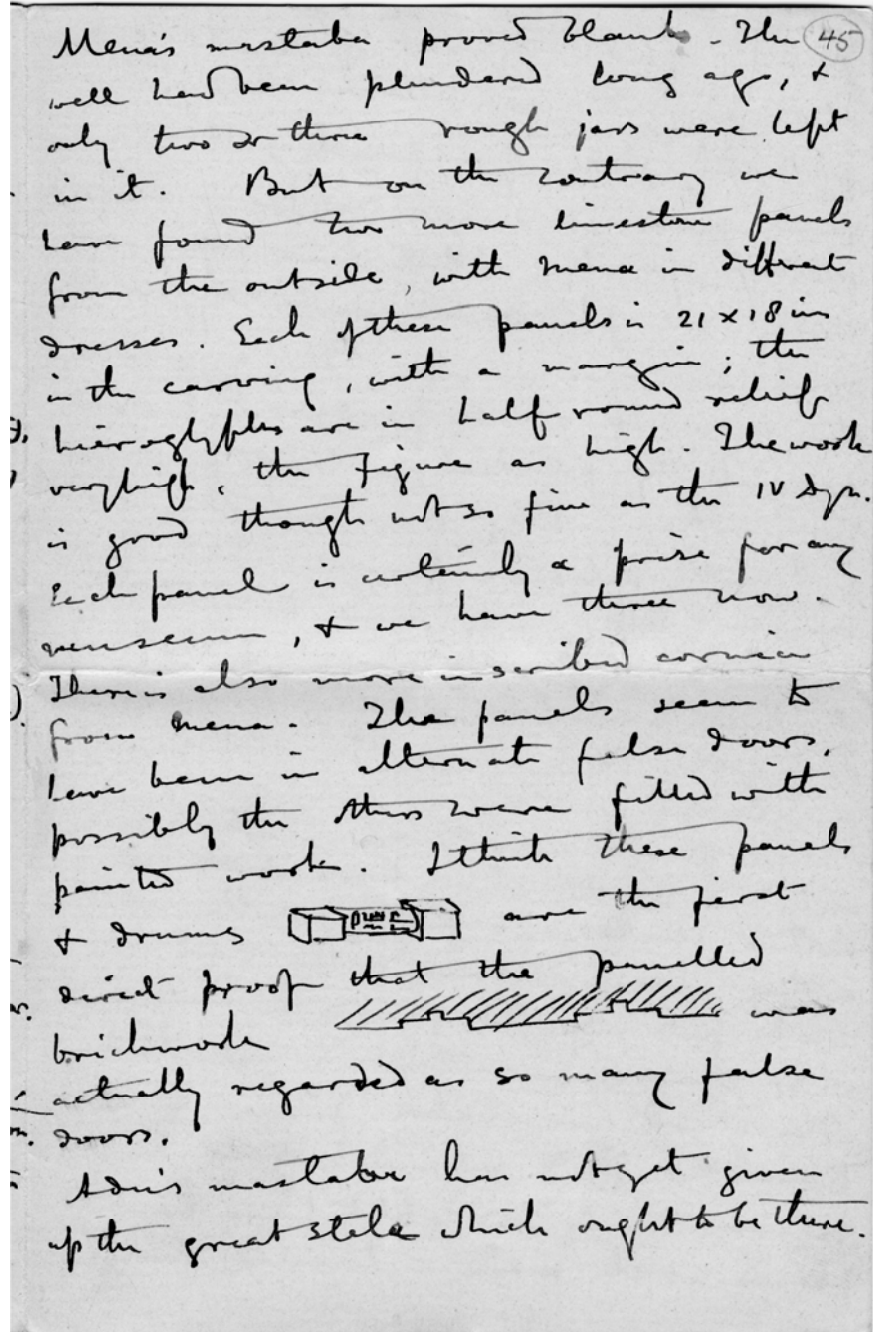 Mena's mastaba proved blank. The 45
well had been plundered long ago, &
only two or three rough jars were left
in it. But on the contrary we
have found two more limestone panels
from the outside, with Mena in different
dresses. Each of these panels is 21 x 18 ins
in the carving, with a margin; the
hieroglyphs are in half round relief
very high, the figure as high. The work
is good though not so fine as the IV Dyn.
Each panel is certainly a prize for any
museum, & we have three now.
There is also more inscribed cornice
from Mena. The panels seem to
have been in alternate false doors,
possibly the others were filled with
painted work. I think these panels
& drums are the first
direct proof that the panelled
brickwork was
actually regarded as so many false
doors.
Adu's mastaba has not yet given
up the great stele which ought to be there.